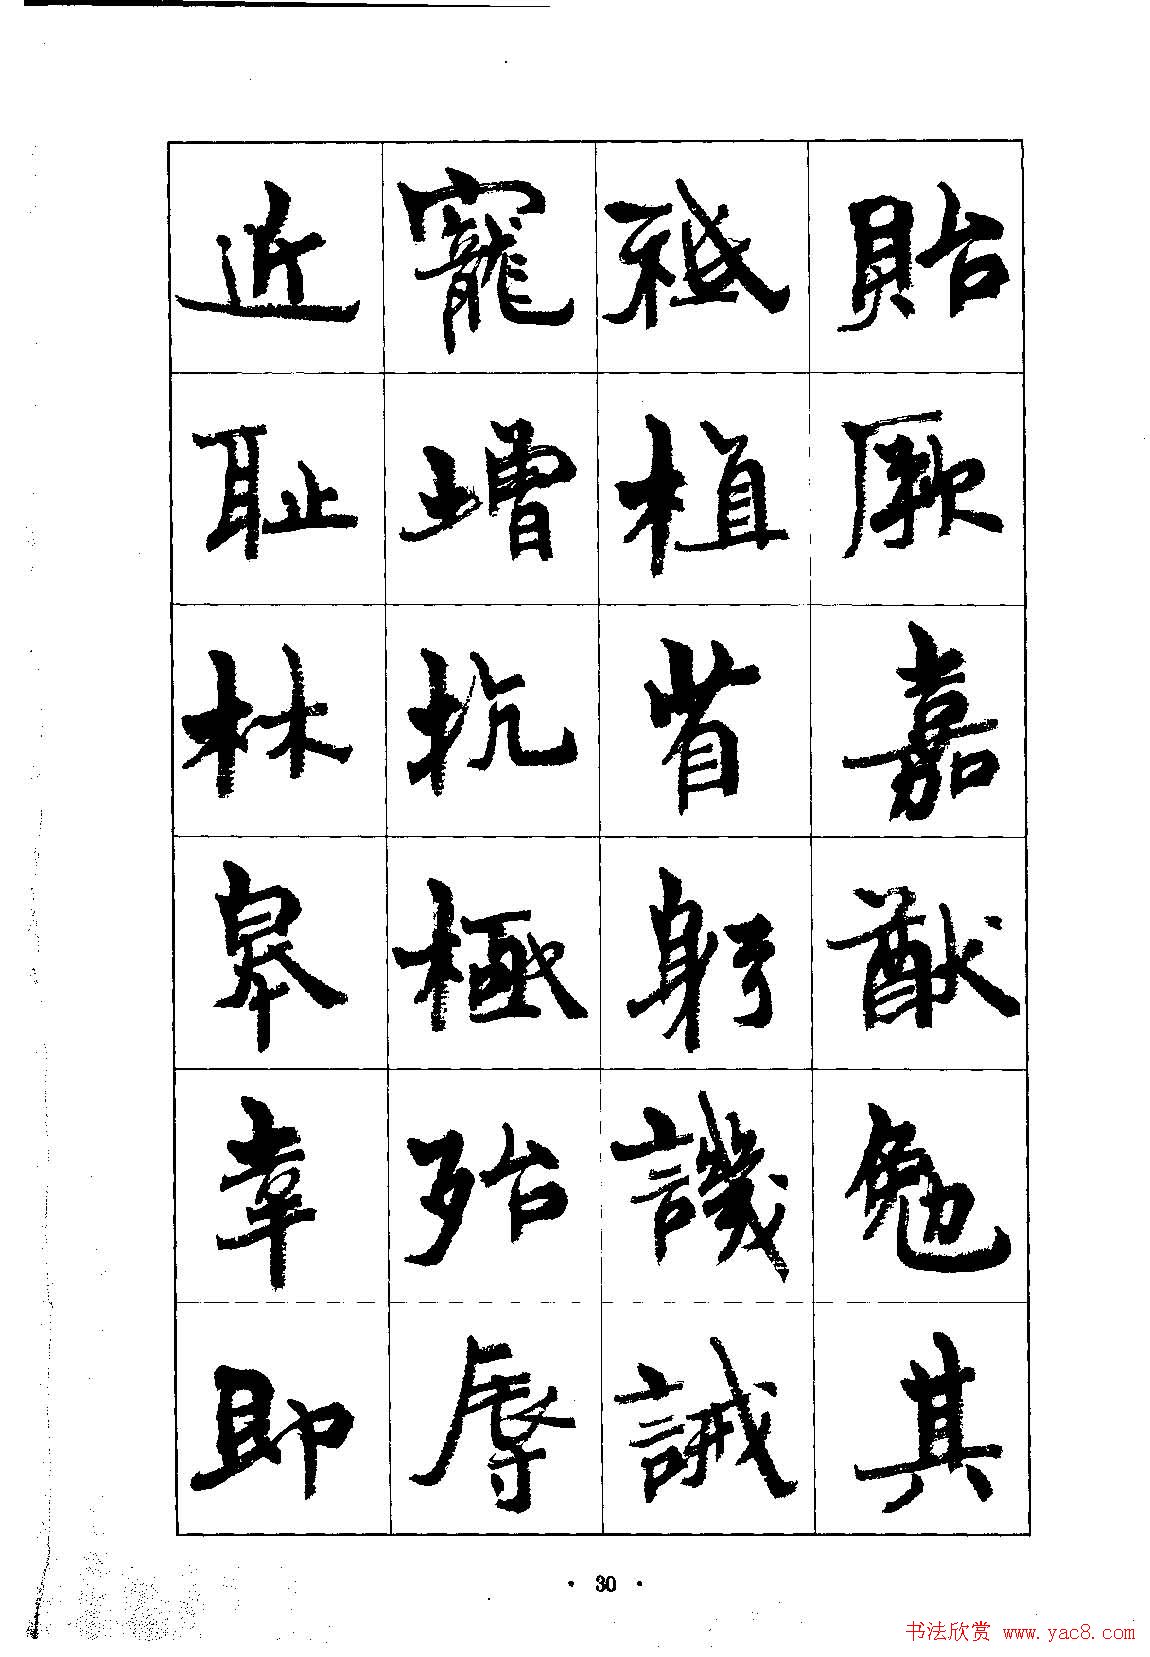 貽厥嘉猷勉其
祗植省躬譏誡
寵增抗極殆辱
近耻林皋幸即
· 30 ·
书法欣赏 www.yac8.com